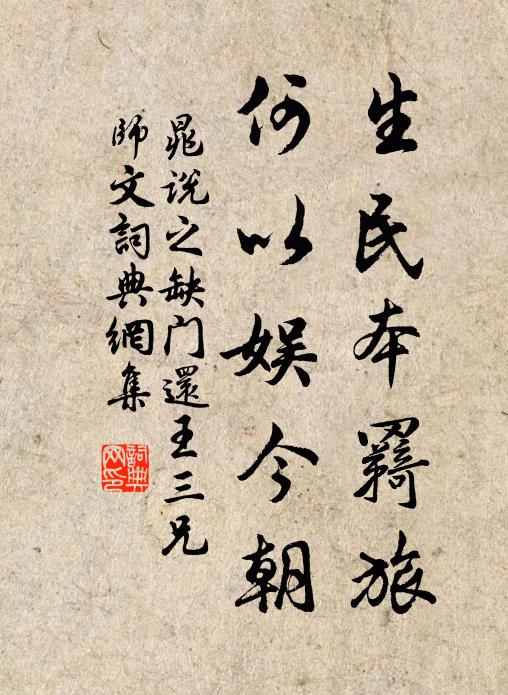 生民本羇旅
何以娱今朝
晁说之缺门還王三兄
師文詞典網集
詞典
网印